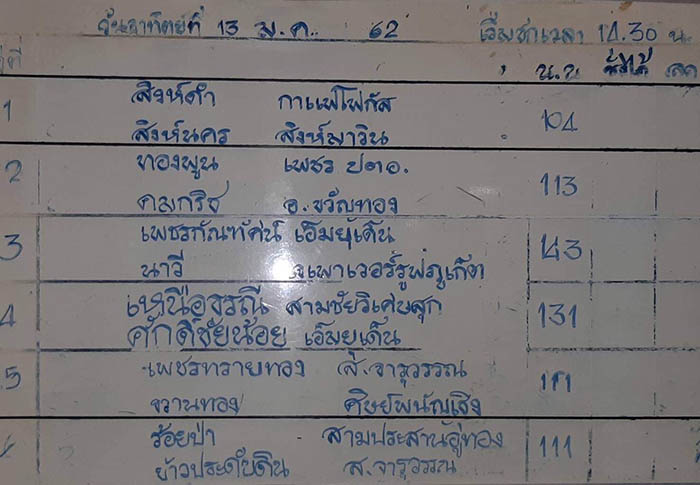 วันอาทิตย์ที่ 13 ม.ค. 62 เริ่มชกเวลา 14.30 น.
คู่ที่ น.น ชั่งได้ ลด
1 สิงห์ดำ กาแฟโฟกัส 104
สิงห์นคร สิงห์มาวิน
2 ทองพูน เพชร ปตอ. 113
คมกริช อ.ขวัญทอง
3 เพชรกัณฑัศน์ เอ็มยูเด็น 143
นาวี จ.เพาเวอร์รูฟภูเก็ต
4 เหนือธรณี สามชัยวิเศษสุก 131
ศักดิ์ชัยน้อย เอ็มยูเด็น
5 เพชรทรายทอง ส.จารุวรรณ 111
ขวานทอง ศิษย์พนัญเชิง
ร้อยป่า สามประสานอู่ทอง 111
ข้าวประดับดิน ส.จารุวรรณ